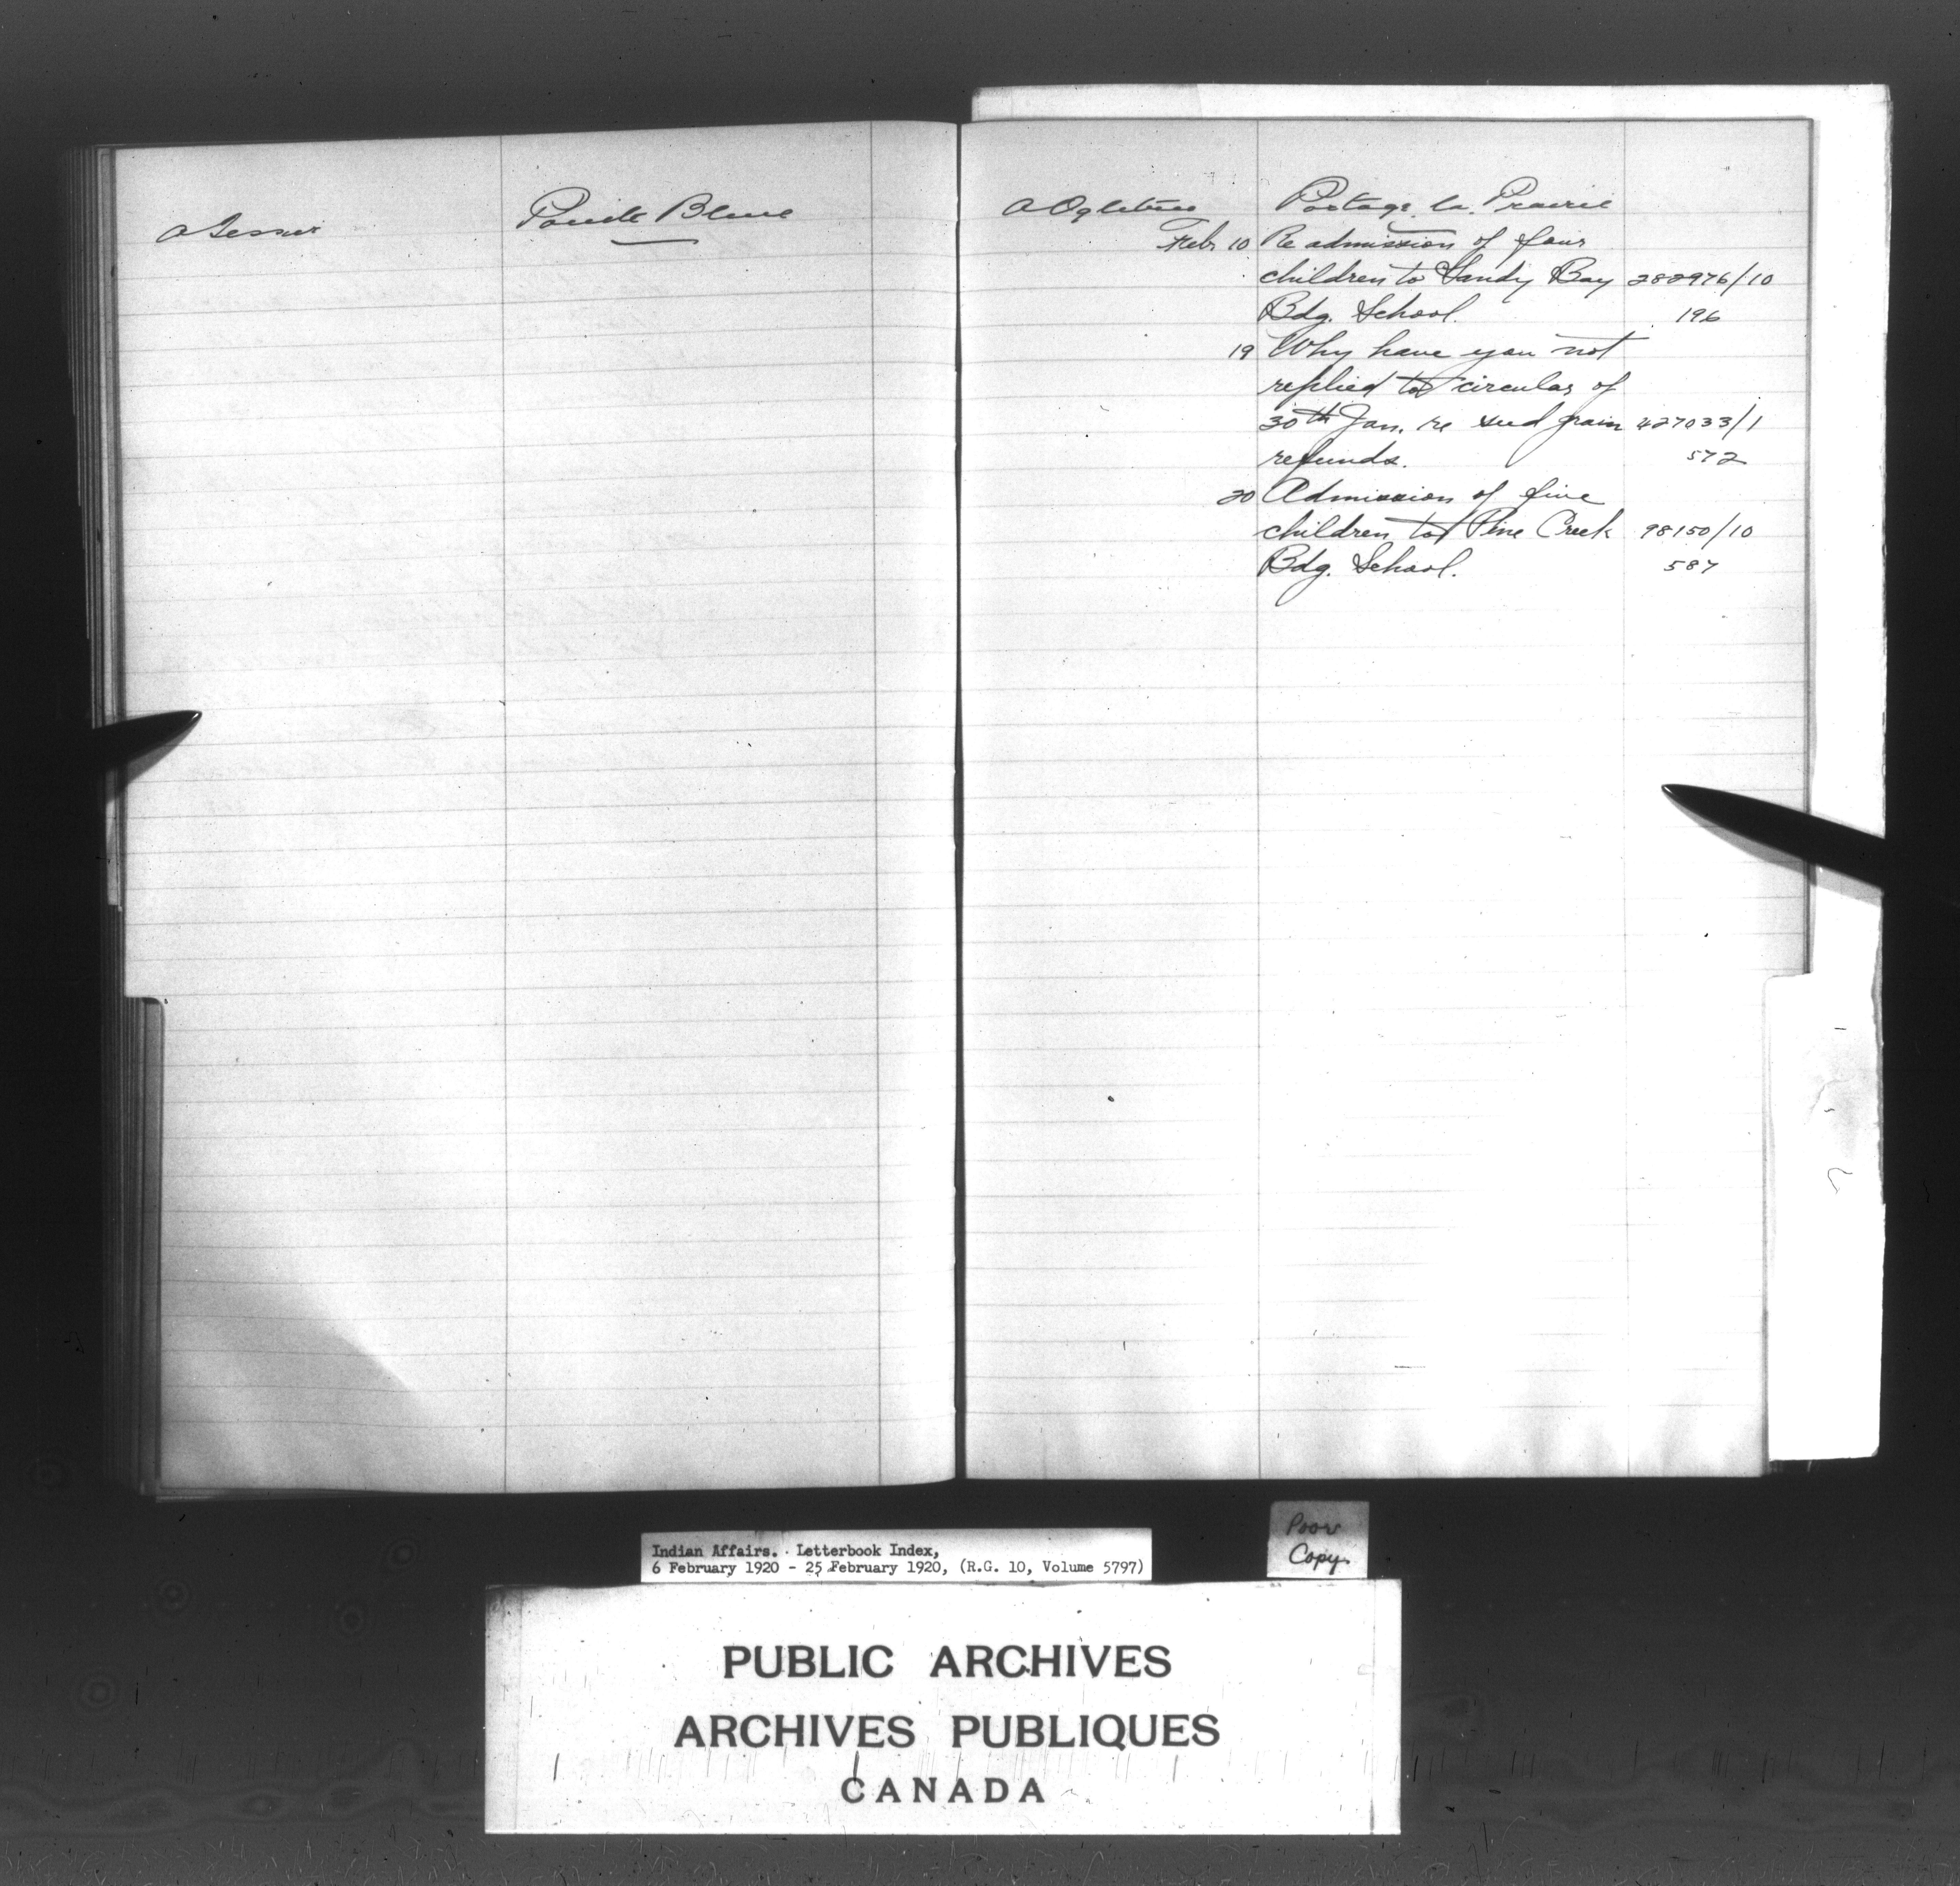 A Tessier
Pointe Bleue
A Ogletree
Portage la Prairie
Feb. 10 Re admission of four
children to Sandy Bay 282976/10
Bdg. School. 196
19 Why have you not
replied to circular of
30th Jan. re seed grain 427033/1
refunds. 572
20 Admission of five
children to Pine Creek 98150/10
Bdg. School. 587
Poor
Copy
Indian Affairs. Letterbook Index,
6 February 1920 - 25 February 1920, (R.G. 10, Volume 5797)
PUBLIC ARCHIVES
ARCHIVES PUBLIQUES
CANADA